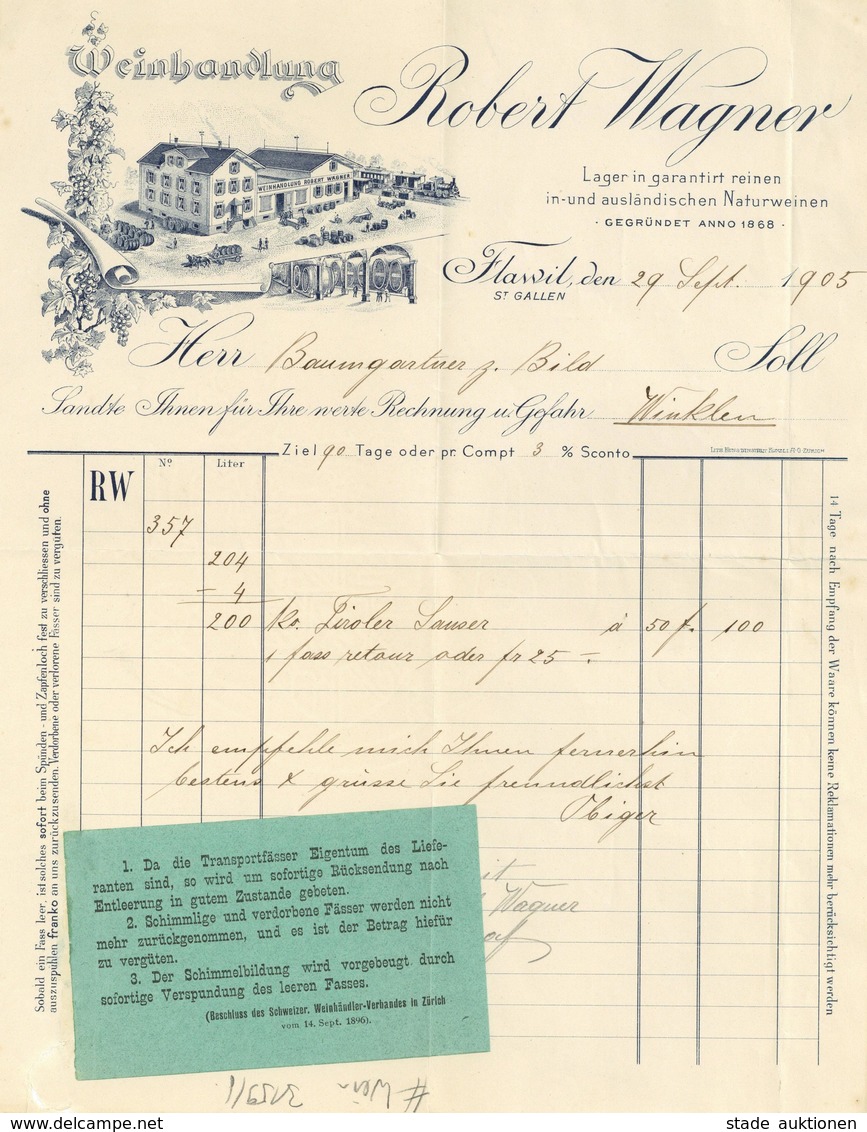 Weinhandlung
Robert Wagner
WEINHANDLUNG ROBERT WAGNER
Lager in garantirt reinen
in- und ausländischen Naturweinen
· GEGRÜNDET ANNO 1868 ·
Flawil, den 29 Sept. 1905
ST GALLEN
Herr Baumgartner z. Bild Soll
Sandte Ihnen für Ihre werte Rechnung u. Gefahr Winklen
Ziel 90 Tage oder pr. Compt 3 % Sconto
RW
No. Liter
357
204
- 4
200 ko. Tiroler Sauser à 50 f. 100
1 fass retour oder fr 25 -.
Ich empfehle mich Ihnen fernerhin
bestens & grüsse Sie freundlichst
Obiger
Wagner
Sobald ein Fass leer, ist solches sofort beim Spünden- und Zapfenloch fest zu verschliessen und ohne
auszuspühlen franko an uns zurückzusenden. Verdorbene oder verlorene Fässer sind zu vergüten.
14 Tage nach Empfang der Waare können keine Reklamationen mehr berücksichtigt werden
1. Da die Transportfässer Eigentum des Liefe-
ranten sind, so wird um sofortige Rücksendung nach
Entleerung in gutem Zustande gebeten.
2. Schimmlige und verdorbene Fässer werden nicht
mehr zurückgenommen, und es ist der Betrag hiefür
zu vergüten.
3. Der Schimmelbildung wird vorgebeugt durch
sofortige Verspundung des leeren Fasses.
(Beschluss des Schweizer. Weinhändler-Verbandes in Zürich
vom 14. Sept. 1896).
# Wein
www.delcampe.net
stade auktionen